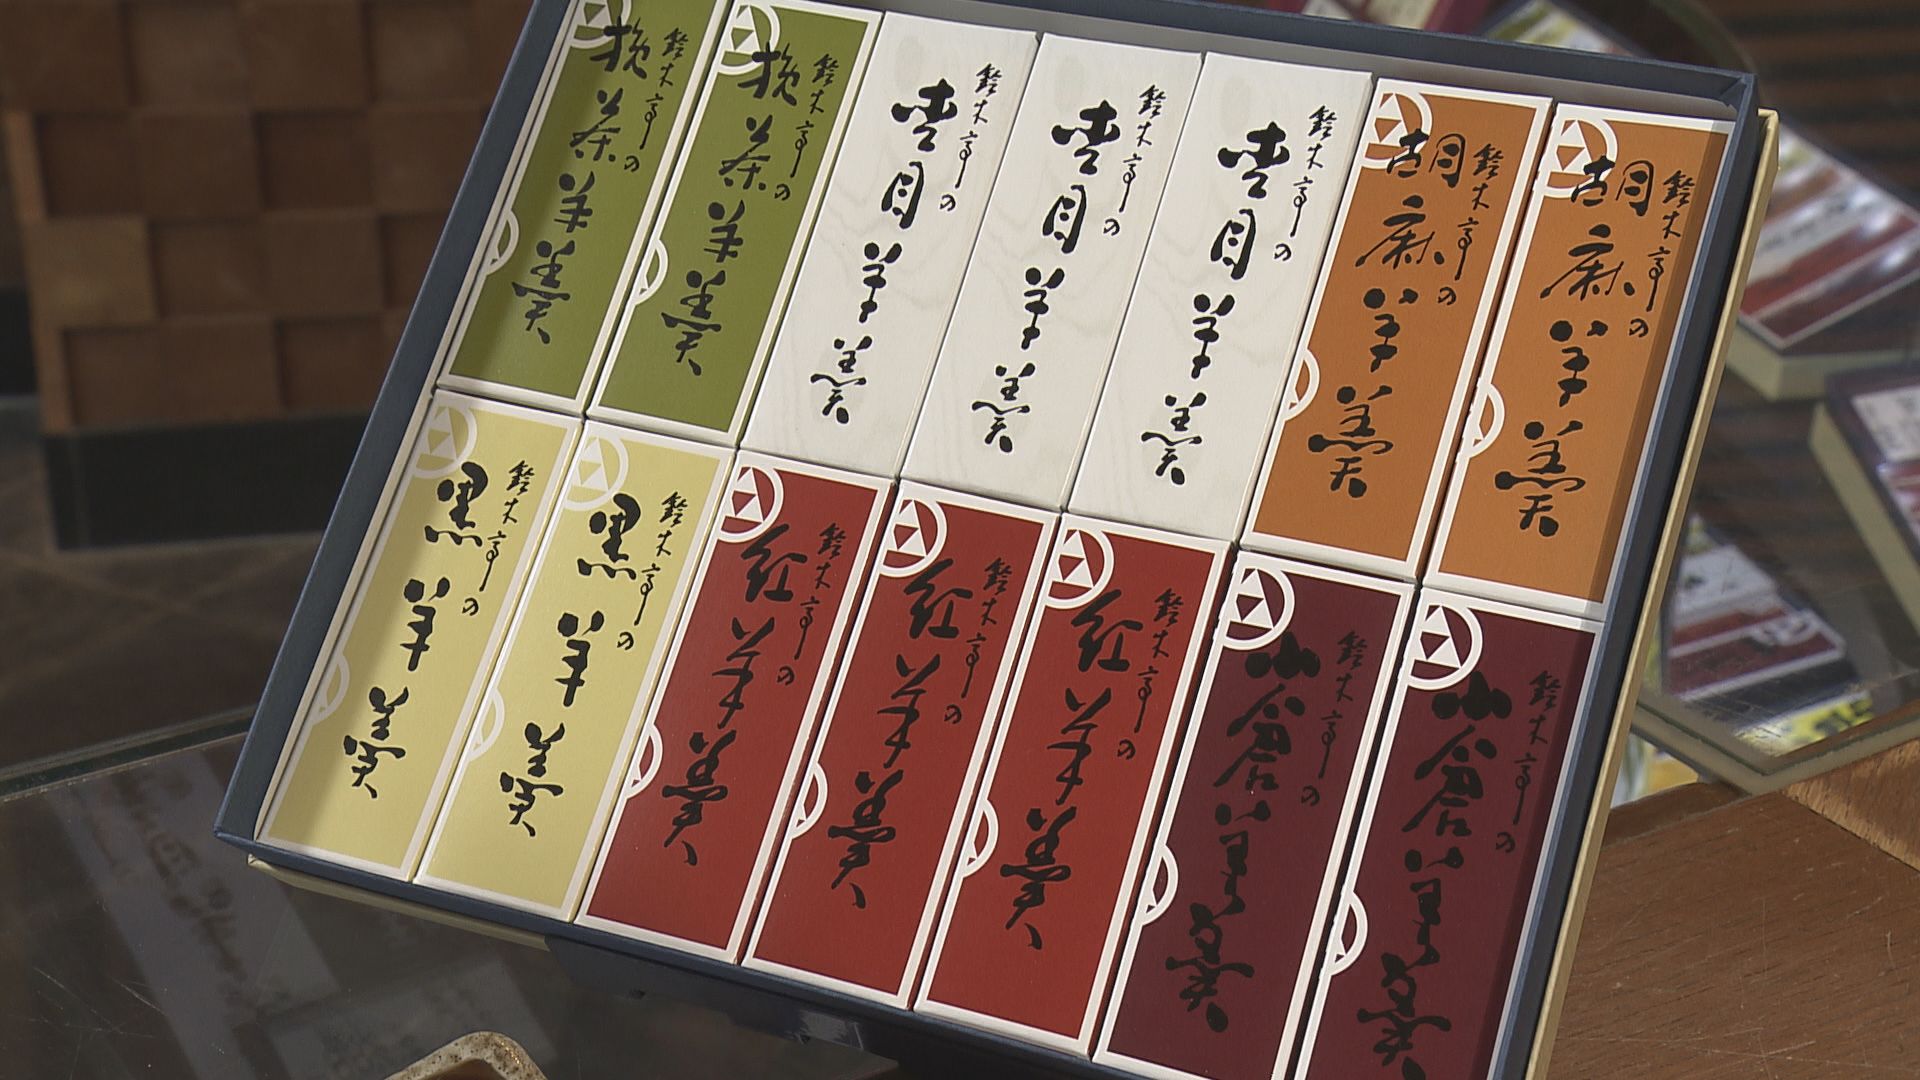 鈴木亭の
挽茶羊羹
鈴木亭の
挽茶羊羹
鈴木亭の
杢目羊羹
鈴木亭の
杢目羊羹
鈴木亭の
杢目羊羹
鈴木亭の
胡麻羊羹
鈴木亭の
胡麻羊羹
鈴木亭の
黒羊羹
鈴木亭の
黒羊羹
鈴木亭の
紅羊羹
鈴木亭の
紅羊羹
鈴木亭の
紅羊羹
鈴木亭の
小倉羊羹
鈴木亭の
小倉羊羹